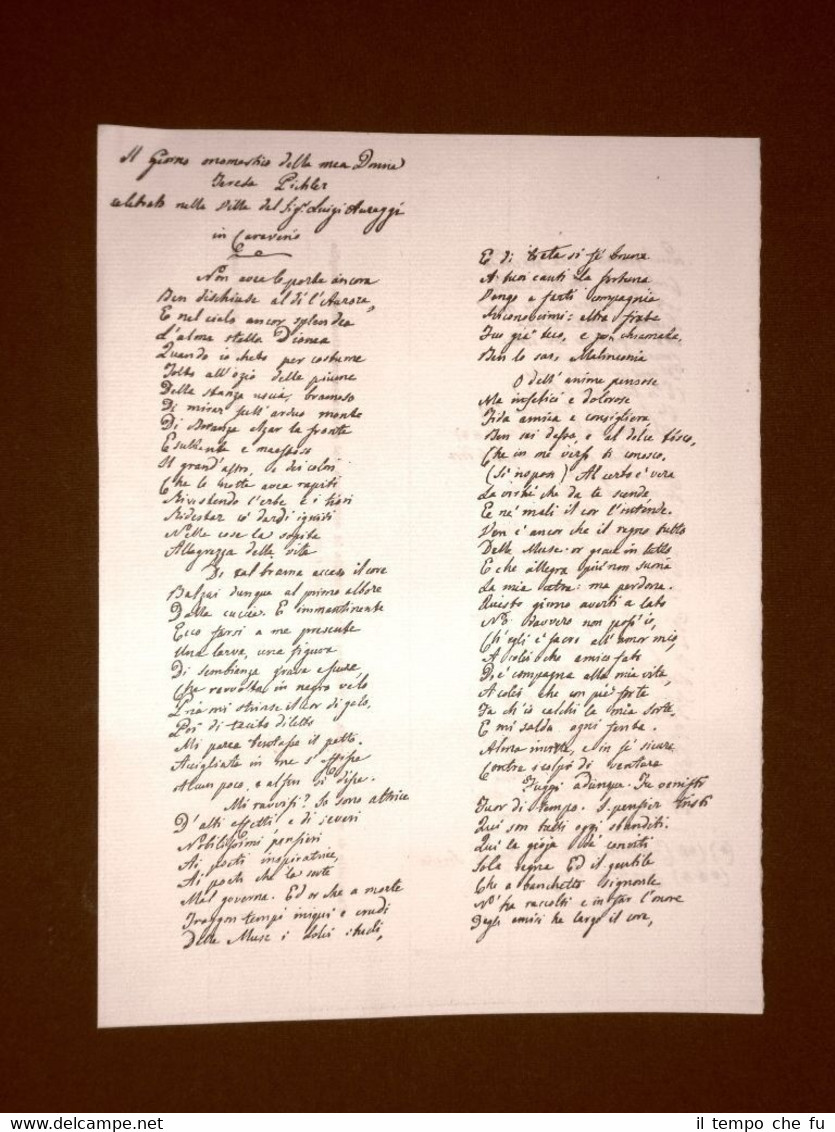 Il Giorno onomastico della mia Donna
Teresa Pichler
celebrato nella Villa del Sig.r Luigi Aureggi
in Caraverio
Non avea le porte ancora
Ben dischiuse al dì l'Aurora,
E nel cielo ancor splendea
L'alma stella Dionea
Quando io cheto per costume
Tolto all'ozio delle piume
Della stanza uscia, bramoso
Di mirar sull'arduo monte
Di Brianza alzar la fronte
Esultante e maestoso
Il grand'astro, e dei colori
Che la notte avea rapiti
Rivestendo l'erbe e i fiori
Ridestar co' dardi igniti
Nelle cose la sopita
Allegrezza della vita
Di tal brama acceso il core
Balzai dunque al primo albore
Dalla cuccia. E immantinente
Ecco farsi a me presente
Una larva, una figura
Di sembianza grave e scura,
Che ravvolta in negro velo
Pria mi strinse il cor di gelo,
Poi di tacito diletto
Mi parea tentasse il petto.
Accigliata in me s'affisse
Alcun poco, e alfin sì disse.
Mi ravvisi? Io sono altrice
D'alti affetti e di severi
Nobilissimi pensieri
Ai poeti inspiratrice,
Ai pochi che la sorte
Mal governa. Ed or che a morte
Traggon tempi iniqui e crudi
Delle Muse i dolci studi,
E di lieta si fè bruna
A' tuoi canti la fortuna
Vengo a farti compagnia
Riconoscimi: altra fiata
Fui già teco, e non chiamata,
Ben lo sai, Malinconia
O dell'anime pensose
Ma infelici e dolorose
Fida amica e consigliera
Ben sei dessa, e al dolce tosco,
Che in me versi ti conosco,
(Sì risposi) Al certo è vera
La virtù che da te scende,
E ne' mali il cor l'intende.
Ven è ancor che il regno tutto
Delle Muse or giace in lutto
E che allegra più non suona
La mia cetra: ma perdona.
Questo giorno averti a lato
No davvero non poss'io,
Ch'egli è sacro all'amor mio,
A colei che amico fato
Diè compagna alla mia vita,
A colei che con piè forte
Fa ch'io calchi la mia sorte,
E mi salda ogni ferita.
Alma invitta, e in sè sicura
Contra i colpi di ventura
Fuggi adunque. Tu venisti
Fuor di tempo. I pensier tristi
Qui son tutti oggi sbanditi.
Qui la gioja de' conviti
Sola regna. Ed il gentile
Che a banchetto signorile
N' ha raccolti e in far l'onore
Degli amici ha largo il core,
il tempo che fu
www.maremagnum.com